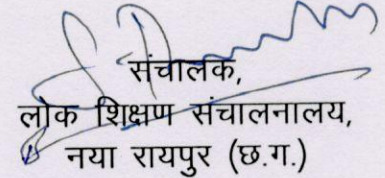 संचालक,
लोक शिक्षण संचालनालय,
नया रायपुर (छ.ग.)